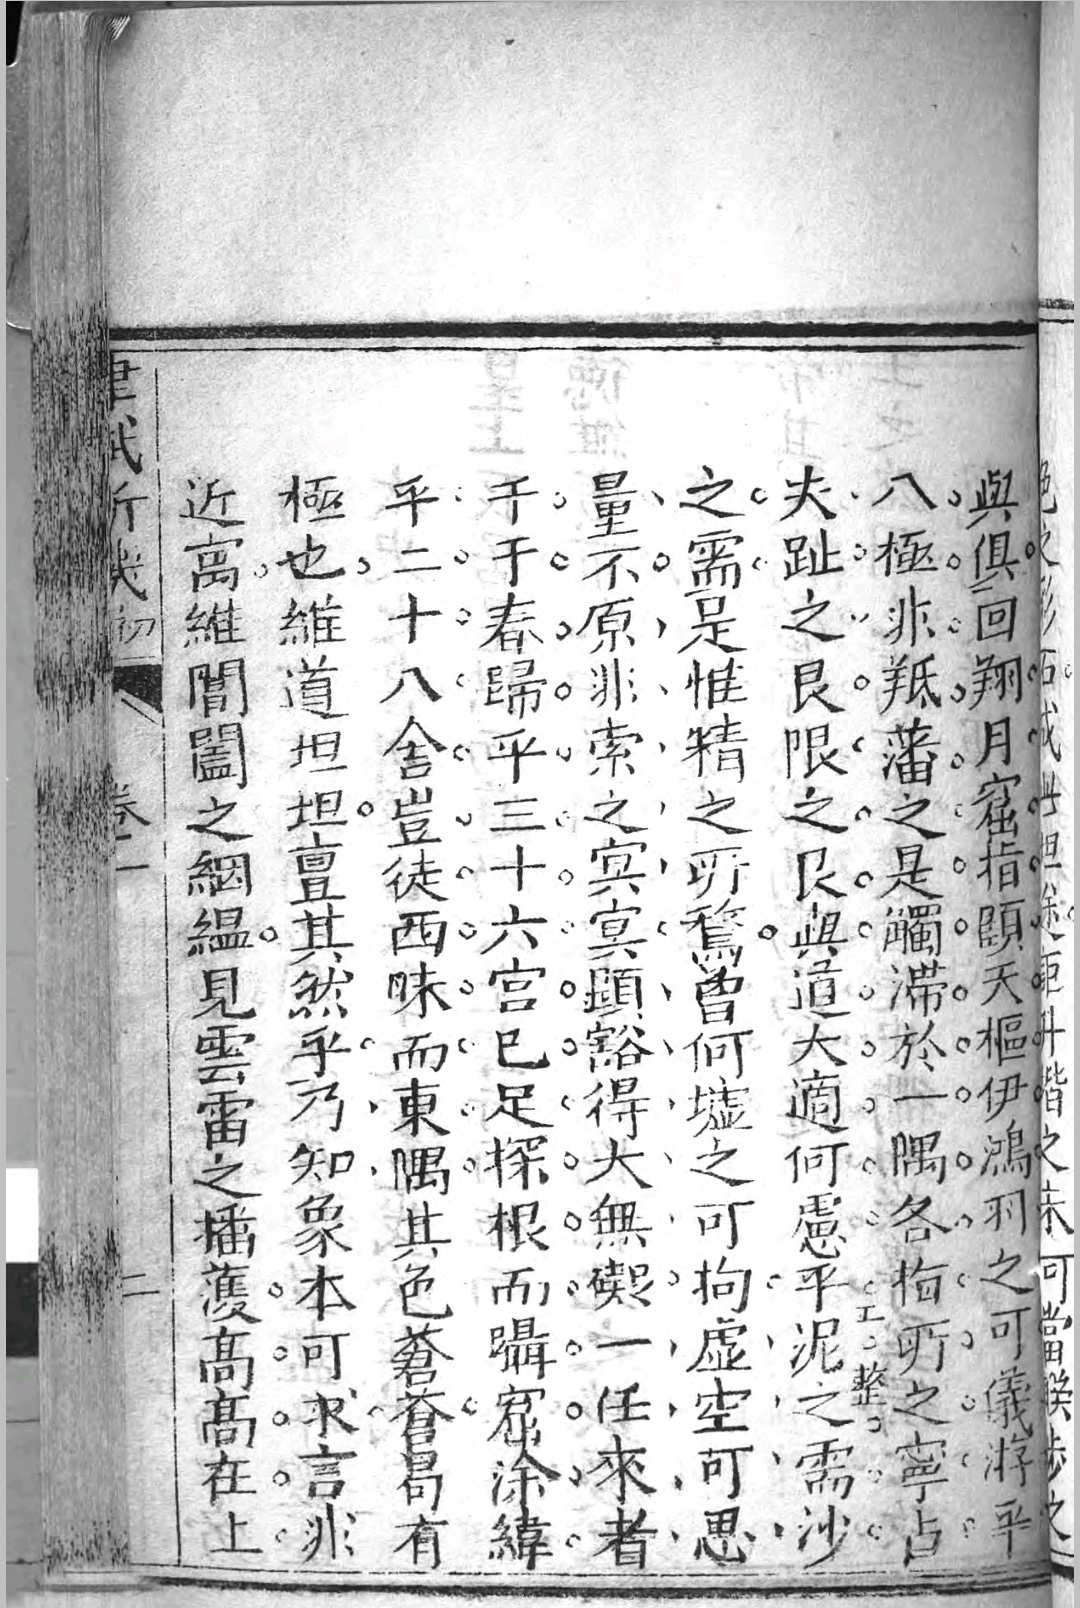 與俱回翔月窟指顧天樞伊鴻羽之可儀游乎
八極非羝藩之是觸滯於一隅各梅所之寧占
工整
夫趾之艮限之艮與道大適何慮乎泥之需沙
之需是惟精之所騖曾何墟之可拘虛空可思
量不原非索之寘寘顯豁得大無礙一任來者
于于春歸乎三十六宮已足探根而躡窟涂緯
乎二十八舍豈徒西昧而東隅其色蒼蒼曷有
極也維道坦坦亶其然乎乃知象本可求言非
近寓維闇闔之網縕見雲雷之播濩高高在上
聿式斤幾初
卷一
二